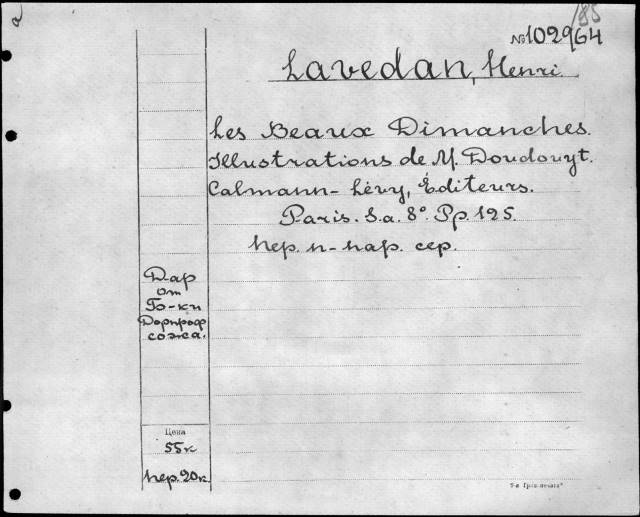 /85
№102964
Lavedan, Henri
Les Beaux Dimanches.
Illustrations de M. Doudouyt.
Calmann-Lévy, Éditeurs.
Paris. S.a. 8°. Pp. 125.
пер. п-кар. сер.
Дар
от
Б-ки
Дорпроф
сожа.
Цена
55к
пер. 20к.